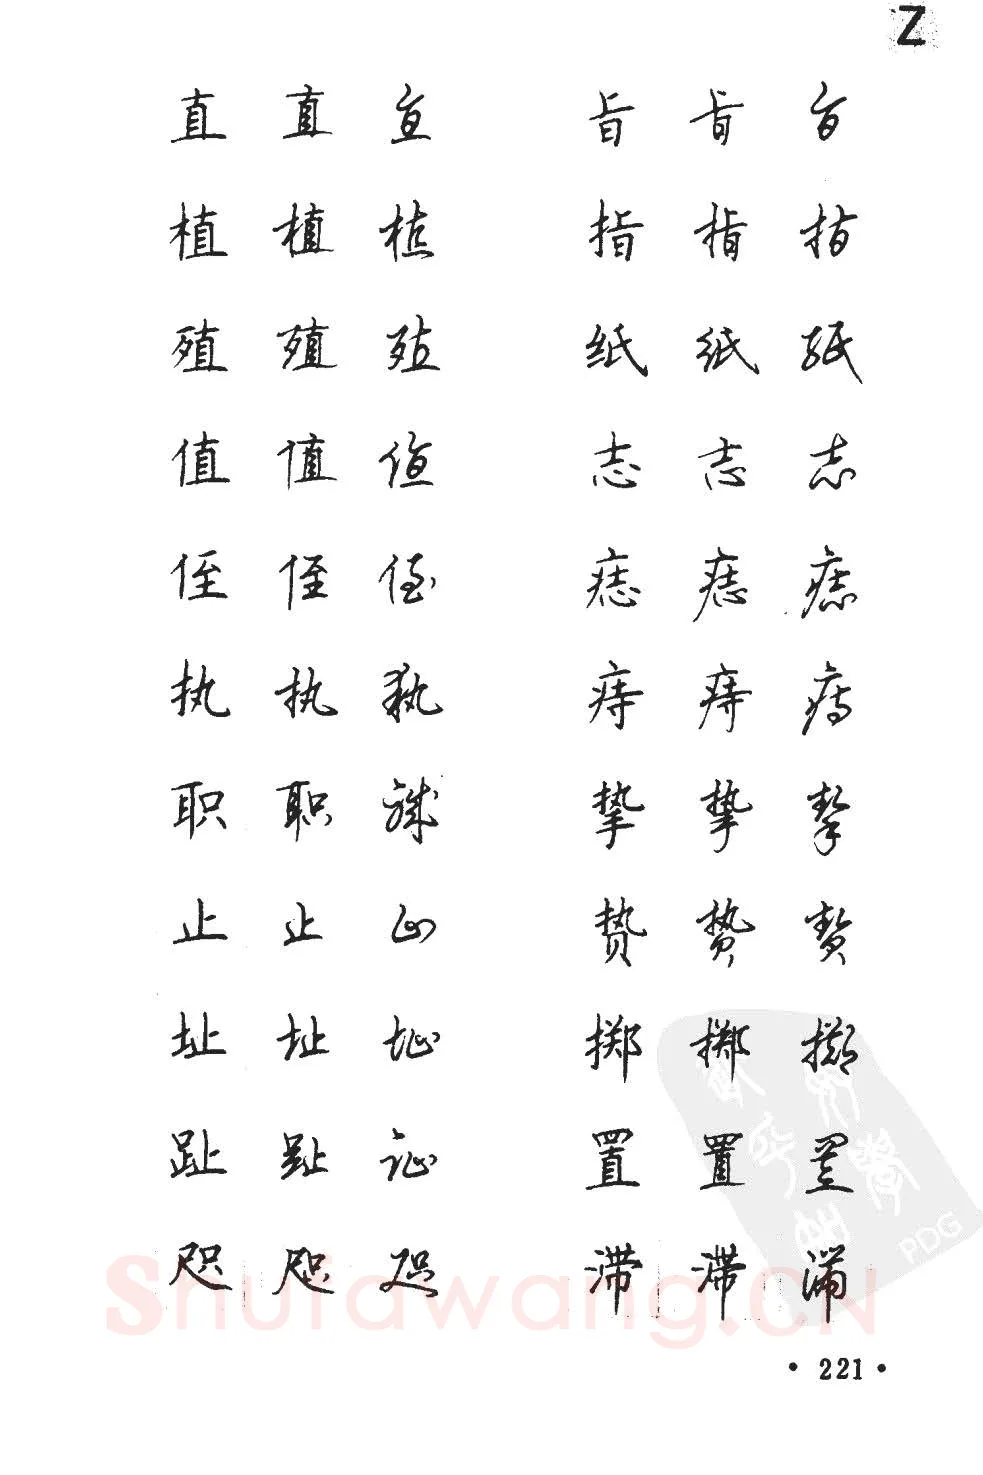 Z
直 直 直 旨 旨 旨
植 植 植 指 指 指
殖 殖 殖 纸 纸 纸
值 值 值 志 志 志
侄 侄 侄 痣 痣 痣
执 执 执 痔 痔 痔
职 职 职 挚 挚 挚
止 止 止 贽 贽 贽
址 址 址 掷 掷 掷
趾 趾 趾 置 置 置
咫 咫 咫 滞 滞 滞
PDG
Shufawang.CN
• 221 •